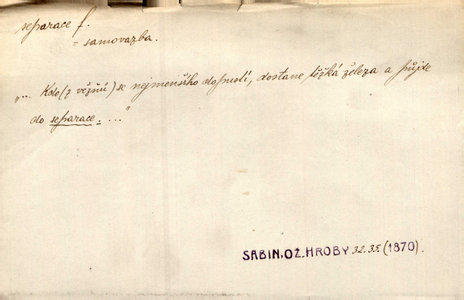 separace f.
= samovazba.
„... Kdo (z vězňů) se nejmenšího dopustí, dostane těžká železa a půjde
do separace. ..."
SABIN, OŽ. HROBY 32.35 (1870).